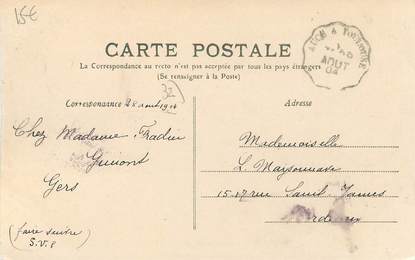 15€
CARTE POSTALE
La Correspondance au recto n'est pas acceptée par tous les pays étrangers
(Se renseigner à la Poste)
AUCH A
AOUT
04
32
Correspondance
Adresse
Chez Madame
Gimont
Gers
(faire suivre
S.V.P
Mademoiselle
L. Maysonnave
rue Saint James